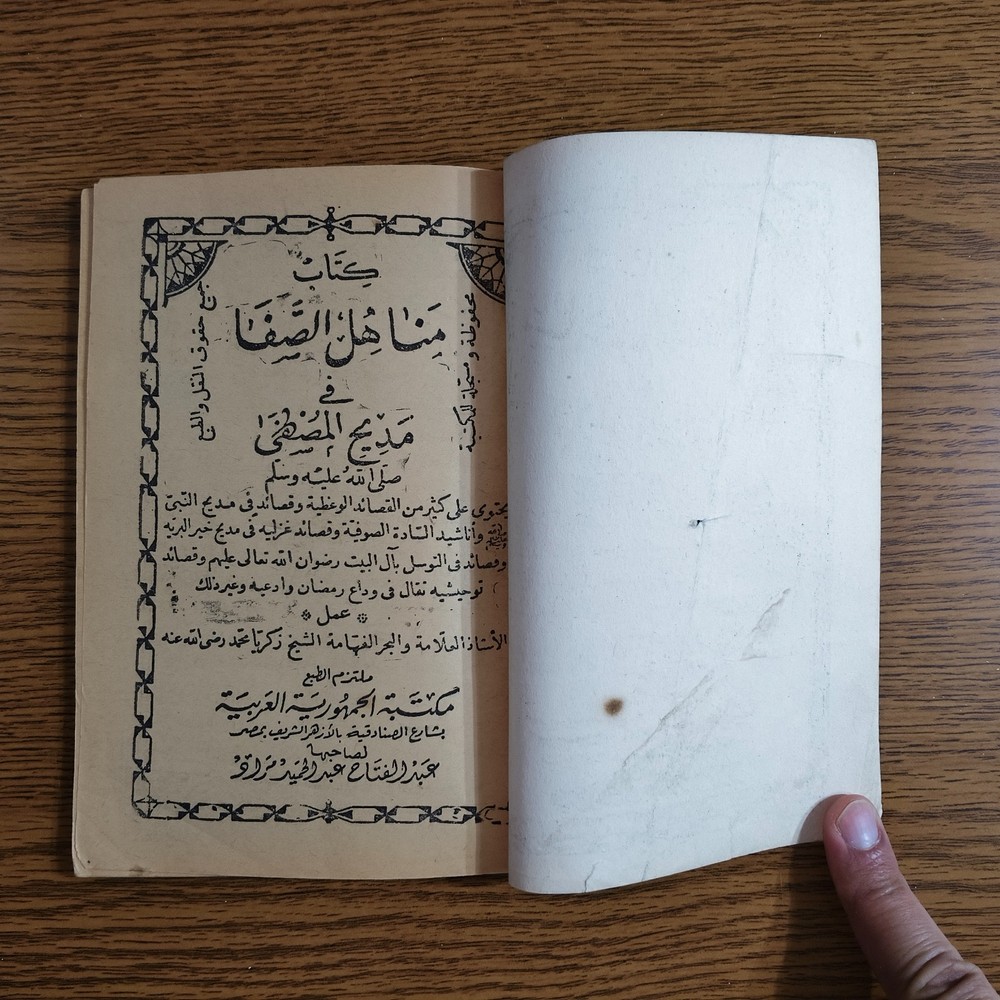 كِتَابُ
مَنَاهِلُ الصَّفَا
في
مَدِيحِ المُصْطَفَى
صلى الله عليه وسلم
يحتوى على كثير من القصائد الوعظية وقصائد في مديح النبي
ﷺ وأناشيد السادة الصوفية وقصائد غزليه في مديح خير البريه
وقصائد في التوسل بآل البيت رضوان الله تعالى عليهم وقصائد
توحيشيه تقال في وداع رمضان وادعية وغير ذلك
عمل
الأستاذ العلامة والبحر الفهامة الشيخ زكريا محمد رضى الله عنه
ملتزم الطبع
مكتبة الجمهورية العربية
بشارع الصنادقية بالأزهر الشريف بمصر
لصاحبها
عبد الفتاح عبد الحميد مراد
جميع حقوق النقل والطبع
محفوظة ومسجلة للمكتبة